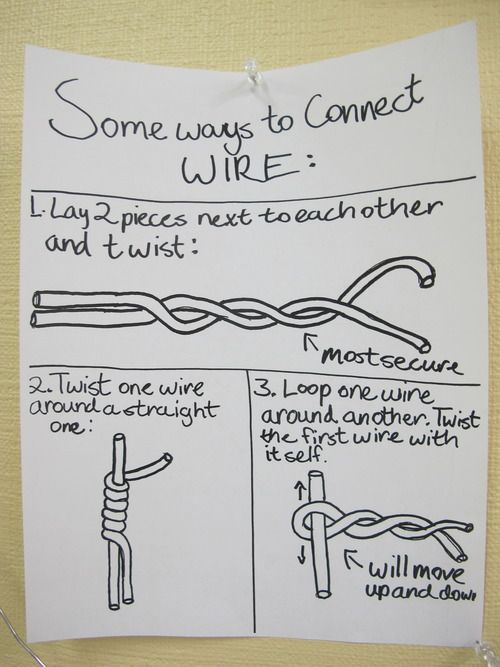 Some ways to Connect
WIRE:
1. Lay 2 pieces next to each other
and twist:
most secure
2. Twist one wire
around a straight
one:
3. Loop one wire
around another. Twist
the first wire with
itself.
will move
up and down